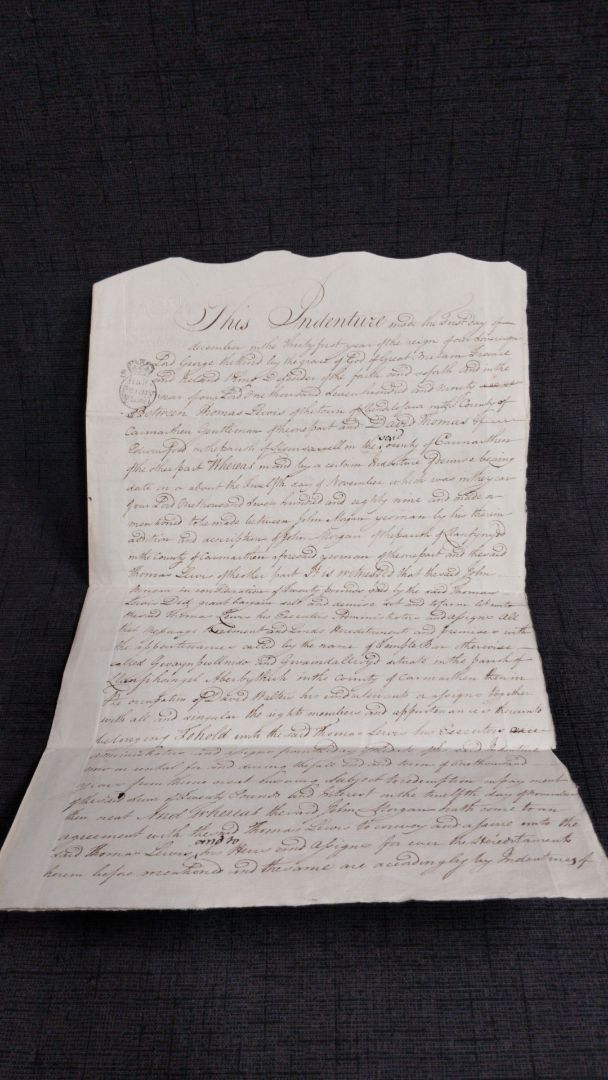 This Indenture made the First day of
December in the Thirty first year of the reign of our Sovereign
Lord George the third by the grace of God of Great Britain France
and Ireland King Defender of the faith and so forth and in the
year of our Lord One thousand seven hundred and ninety
Between Thomas Lewis of the town of in the County of
Carmarthen Gentleman of the one part and David Thomas of
in the parish of in the said County of Carmarthen
of the other part Whereas in and by a certain Indenture of Demise bearing
date on or about the Twelfth day of November which was in the year
of our Lord One thousand seven hundred and eighty nine and made or
mentioned to be made between John Morgan yeoman by his therein
addition and description of John Morgan of the parish of
in the County of Carmarthen aforesaid yeoman of the one part and the said
Thomas Lewis of the other part It is witnessed that the said John
Morgan in consideration of Twenty pounds paid by the said Thomas
Lewis Did grant bargain sell and demise set and to farm let unto
the said Thomas Lewis his Executors Administrators and assigns All
that Messuage Tenement and Lands Hereditaments and premises with
the appurtenances called by the name of Temple Bar otherwise
called and situate in the parish of
Llanfihangel Aberbythick in the County of Carmarthen then in
the occupation of David his undertenants or assigns together
with all and singular the rights members and appurtenances thereunto
belonging To hold unto the said Thomas Lewis his Executors
administrators and assigns from the day of the date of the said Indenture
now in recital for and during the full end and term of One thousand
years from thence next ensuing Subject to redemption on payment
of the said sum of Twenty Pounds and Interest on the twelfth day of November
then next And Whereas the said John Morgan hath come to an
agreement with the said Thomas Lewis to convey and assure unto the
said Thomas Lewis and to his Heirs and assigns for ever the Hereditaments
herein before mentioned and the same are accordingly by Indentures of